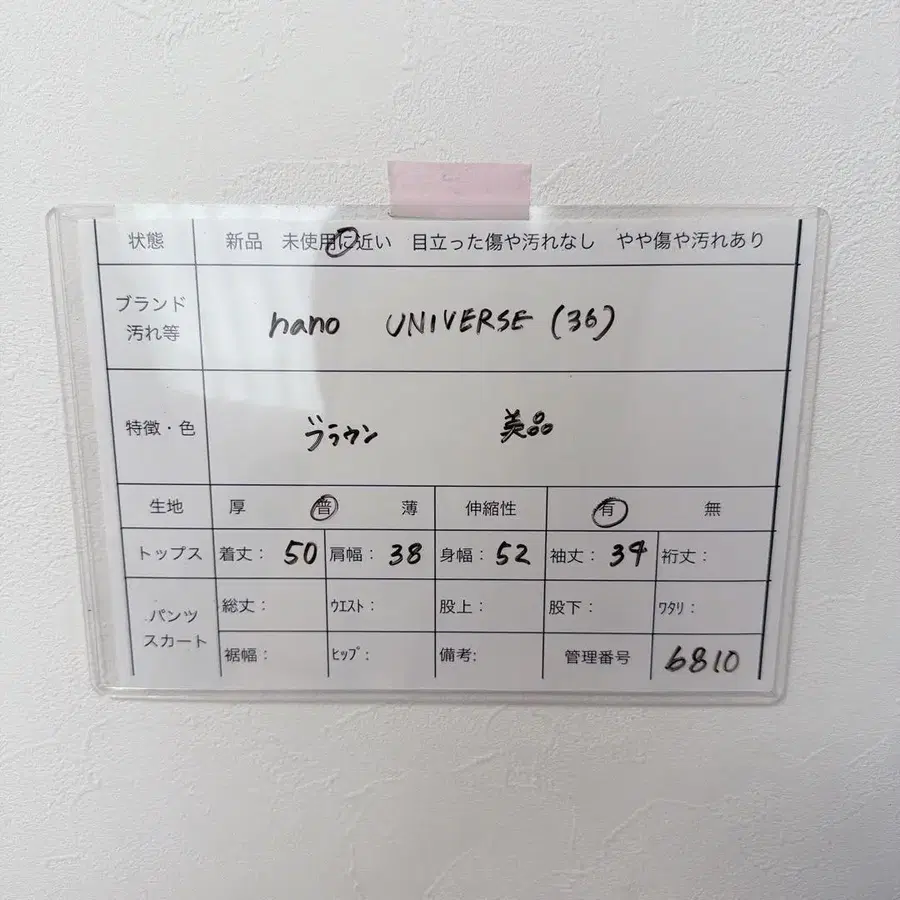 状態 新品 未使用に近い 目立った傷や汚れなし やや傷や汚れあり
ブランド
汚れ等
nano UNIVERSE (36)
特徴・色 ブラウン 美品
生地 厚 普 薄 伸縮性 有 無
トップス 着丈: 50 肩幅: 38 身幅: 52 袖丈: 34 裄丈:
パンツ
スカート
総丈: ウエスト: 股上: 股下: ワタリ:
裾幅: ヒップ: 備考: 管理番号 6810